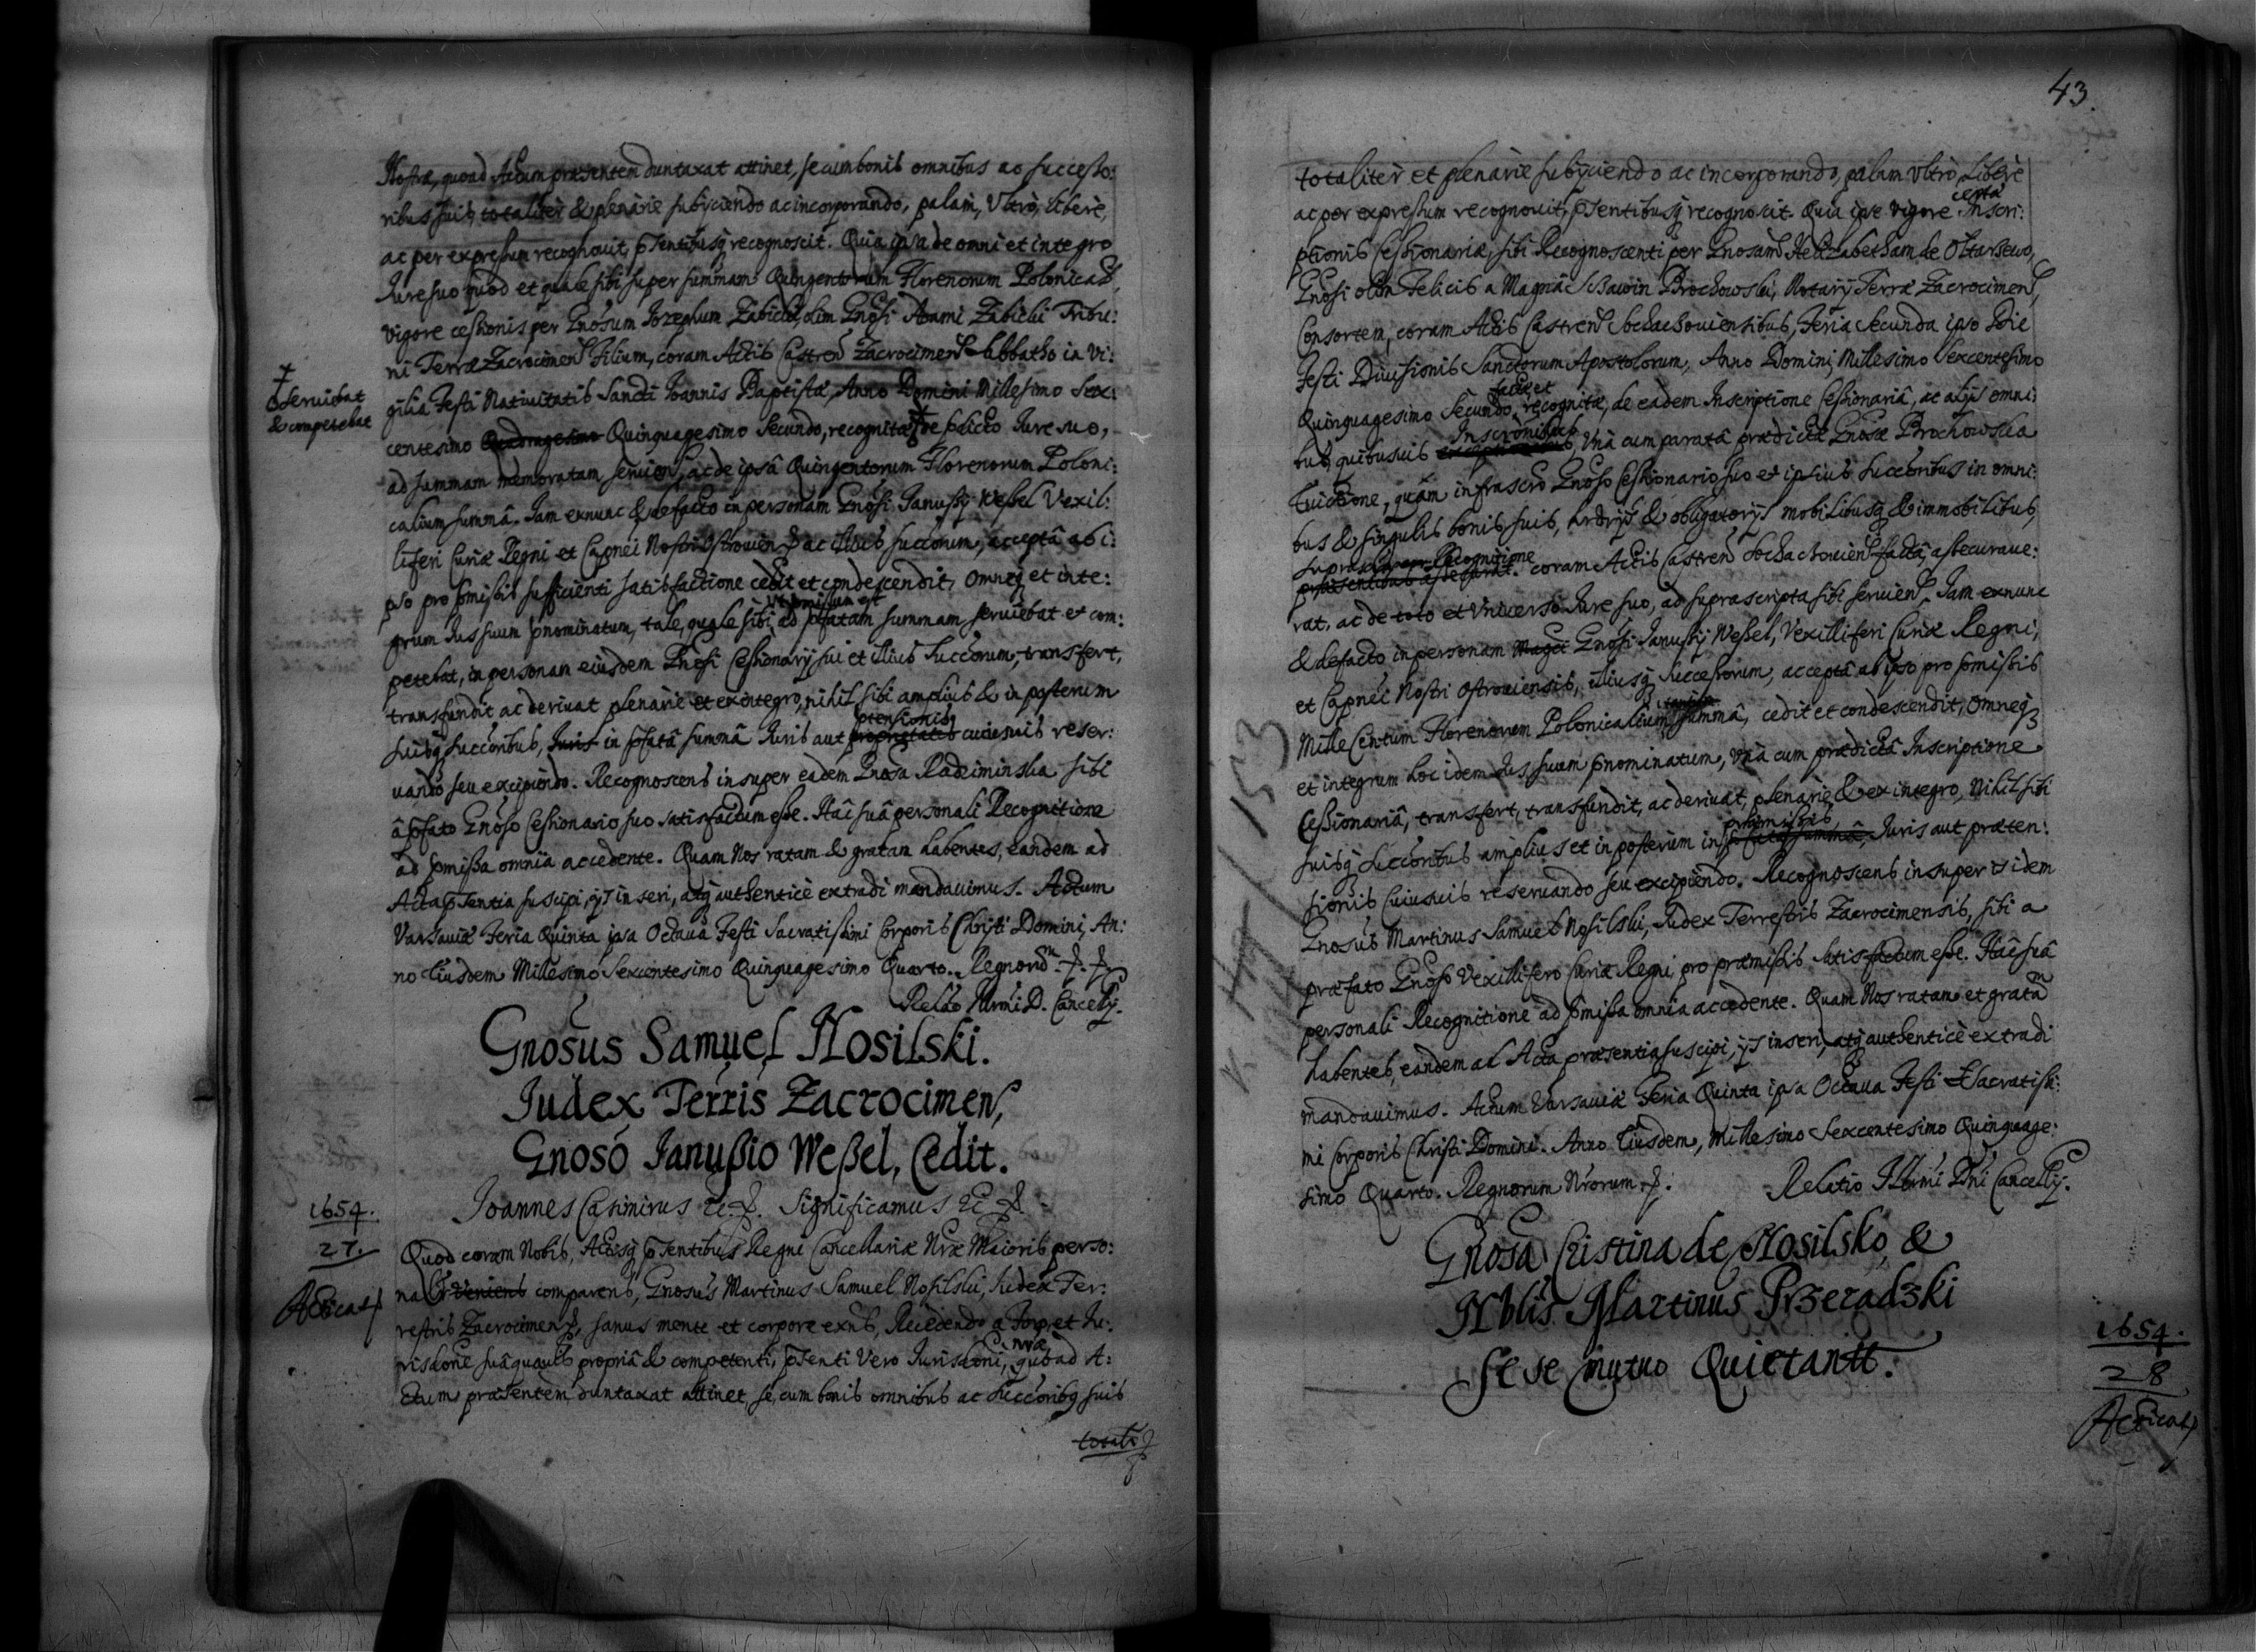 Nostræ, quoad Actum præsentem duntaxat attinet, se cum bonis omnibus ac successo:
ribus suis, totaliter & plenarie subÿciendo ac incorporando, palam, Vltrò, liberè,
ac per expressum recognouit, pntibusq recognoscit. Quia ipsa de omni et integro
Iure suo quod et quale sibi super summam Quingentorum Florenorum Polonical,
vigore cessionis per Gnosum Iozephum Zabicki, olim Gnosi Adami Zabicki Tribu:
ni Terræ Zacrocimen Filium, coram Actis Castren Zacrocimen Sabbatho in Vi:
gilia Festi Natiuitatis Sancti Ioannis Baptistæ, Anno Domini Millesimo Sex:
centesimo Quadragesimo Quinquagesimo Secundo, recognitæ de pdicto Iure suo,
‡ seruiebat
& competebat
ad summam memoratam seruien, ac de ipsâ Quingentorum Florenorum Poloni:
calium summâ. Iam exnunc & defacto in personam Gnosi Ianussÿ Wessel Vexil:
liferi Curiæ Regni et Capnei Nostri Ostrouien ac illius succorum, acceptâ ab i:
pso pro pmissis sufficienti satisfactione cedit et condescendit, omneq et inte:
grum Ius suum pnominatum, tale, quale sibi, vt pmissum est ad pfatam summam seruiebat et com:
petebat, in personam eiusdem Gnosi Cessionarÿ sui et illius Succorum, transfert,
transfundit ac deriuat plenariè et exintegro, nihil sibi amplius & in posterum
suisq succoribus, Iuris in pfatâ summâ Iuris aut proprietatis ptensionis cuiusuis reser:
uando seu excipiendo. Recognoscens insuper eadem Gnosa Radziminska sibi
â pfato Gnoso Cessionario suo satisfactum esse. Hâc suâ personali Recognitione
ad pmissa omnia accedente. Quam Nos ratam & gratam habentes, eandem ad
Acta pntia suscipi, ÿs inseri, atq authenticè extradi mandauimus. Actum
Varsauiæ Feria Quinta ipsa Octaua Festi Sacratissimi Corporis Christi Domini, An:
no Eiusdem Millesimo Sexcentesimo Quinquagesimo Quarto. Regnorum
Relatio Illrmi D. Cancellÿ.
Gnosus Samuel Nosilski.
Iudex Terris Zacrocimen,
Gnoso Ianußio Weßel, Cedit.
1654.
27.
Acticat
Ioannes Casimirus &c. Significamus &c
Quod coram Nobis, Actisq pntibus Regni Cancellariæ Nræ Maioris perso:
nalr veniens comparens, Gnosus Martinus Samuel Nosilski, Iudex Ter:
restris Zacrocimen, sanus mente et corpore exns, Recedendo a Foro, et Iu:
risdone suâ quauis propriâ & competenti, pnti vero Iurisdoni, nræ, quoad A:
ctum præsentem duntaxat attinet, se, cum bonis omnibus ac Succoribq suis
totalr
43.
totaliter et plenariè subÿciendo ac incorporando, palam Vltrò, Liberè
ac per expressum recognouit, pntibusq recognoscit. Quia ipse vigore certæ Inscri:
ptionis Cessionariæ, sibi Recognoscenti per Gnosam Helizabetham de Oltarzewo,
Gnosi olim Felicis a Magnâ Brochowski, Notarÿ Terræ Zacrocimen,
Consortem, coram Actis Castren Sochachouiensibus, Feria Secunda ipso Die
Festi Diuisionis Sanctorum Apostolorum, Anno Domini Millesimo Sexcentesimo
Quinquagesimo Secundo, factæ et recognitæ, de eadem Inscriptione Cessionariâ, ac alÿs omni:
bus, quibusuis Inscronibus, Vnâ cum paratâ prædictæ Gnosæ Brochowska
Euictione, quam infrascro Gnoso Cessionario suo et ipsius Succoribus in omni:
bus & singulis bonis suis, hrdrÿs & obligatorÿs mobilibusq & immobilibus,
Recognitione coram Actis Castren Sochachouien factâ, assecuraue:
rat. ac de toto et Vniuerso Iure suo, ad suprascripta sibi seruien. Iam exnunc
& defacto in personam Magci Gnosi Ianussÿ Wessel, Vexilliferi Curiæ Regni,
et Capnei Nostri Ostrouiensis, illiusq Successorum, acceptâ ab ipso pro pmissis
Mille Centum Florenorum Polonicalium summâ, cedit et condescendit, Omneq
et integrum hoc idem Ius suum pnominatum, Vnà cum prædictâ Inscriptione
Cessionariâ, transfert, transfundit, ac deriuat, plenariè & ex integro, Nihil sibi
suisq Succoribus amplius et in posterum in præmissis pfata summâ, Iuris aut præten:
sionis Cuiusuis reseruando seu excipiendo. Recognoscens insuper is idem
Gnosus Martinus Samuel Nosilski, Iudex Terrestris Zacrocimensis, sibi a
præfato Gnoso Vexillifero Curiæ Regni pro præmissis satisfactum esse. Hâc suâ
personali Recognitione ad pmissa omnia accedente. Quam Nos ratam et gratam
habentes, eandem ad Acta præsentia suscipi, ÿs inseri, atq authenticè extradi
mandauimus. Actum Varsauiæ Feria Quinta ipsa Octaua Festi Sacratissi:
mi Corporis Christi Domini. Anno Eiusdem, Millesimo Sexcentesimo Quinquage:
simo Quarto. Regnorum Nrorum.
Relatio Illrmi Dni Cancellÿ.
Gnosa Cristina de Nosilsko, &
Nblis Martinus Przeradzki
Se se mutuo Quietantt.
1654.
28
Acticat